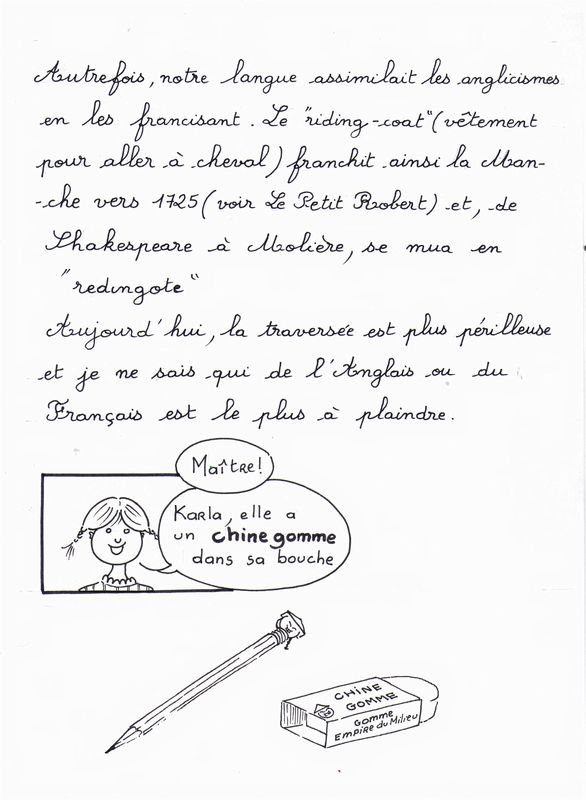 Autrefois, notre langue assimilait les anglicismes
en les francisant. Le "riding-coat" (vêtement
pour aller à cheval) franchit ainsi la Man-
-che vers 1725 (voir Le Petit Robert) et, de
Shakespeare à Molière, se mua en
"redingote"
Aujourd'hui, la traversée est plus périlleuse
et je ne sais qui de l'Anglais ou du
Français est le plus à plaindre.
Maître!
Karla, elle a
un chine gomme
dans sa bouche
CHINE
GOMME
Gomme
Empire du Milieu